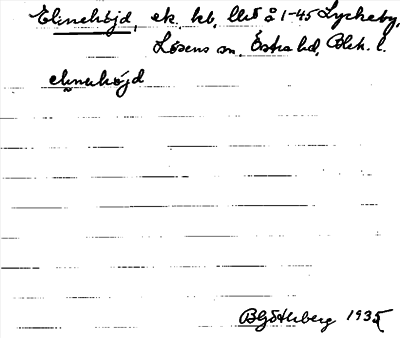 Elinehöjd, ek. hb, lht å 1-45 Lyckeby,
Lösens sn. Östra hd, Blek. l.
elinəhöjd
B Götlberg 1935